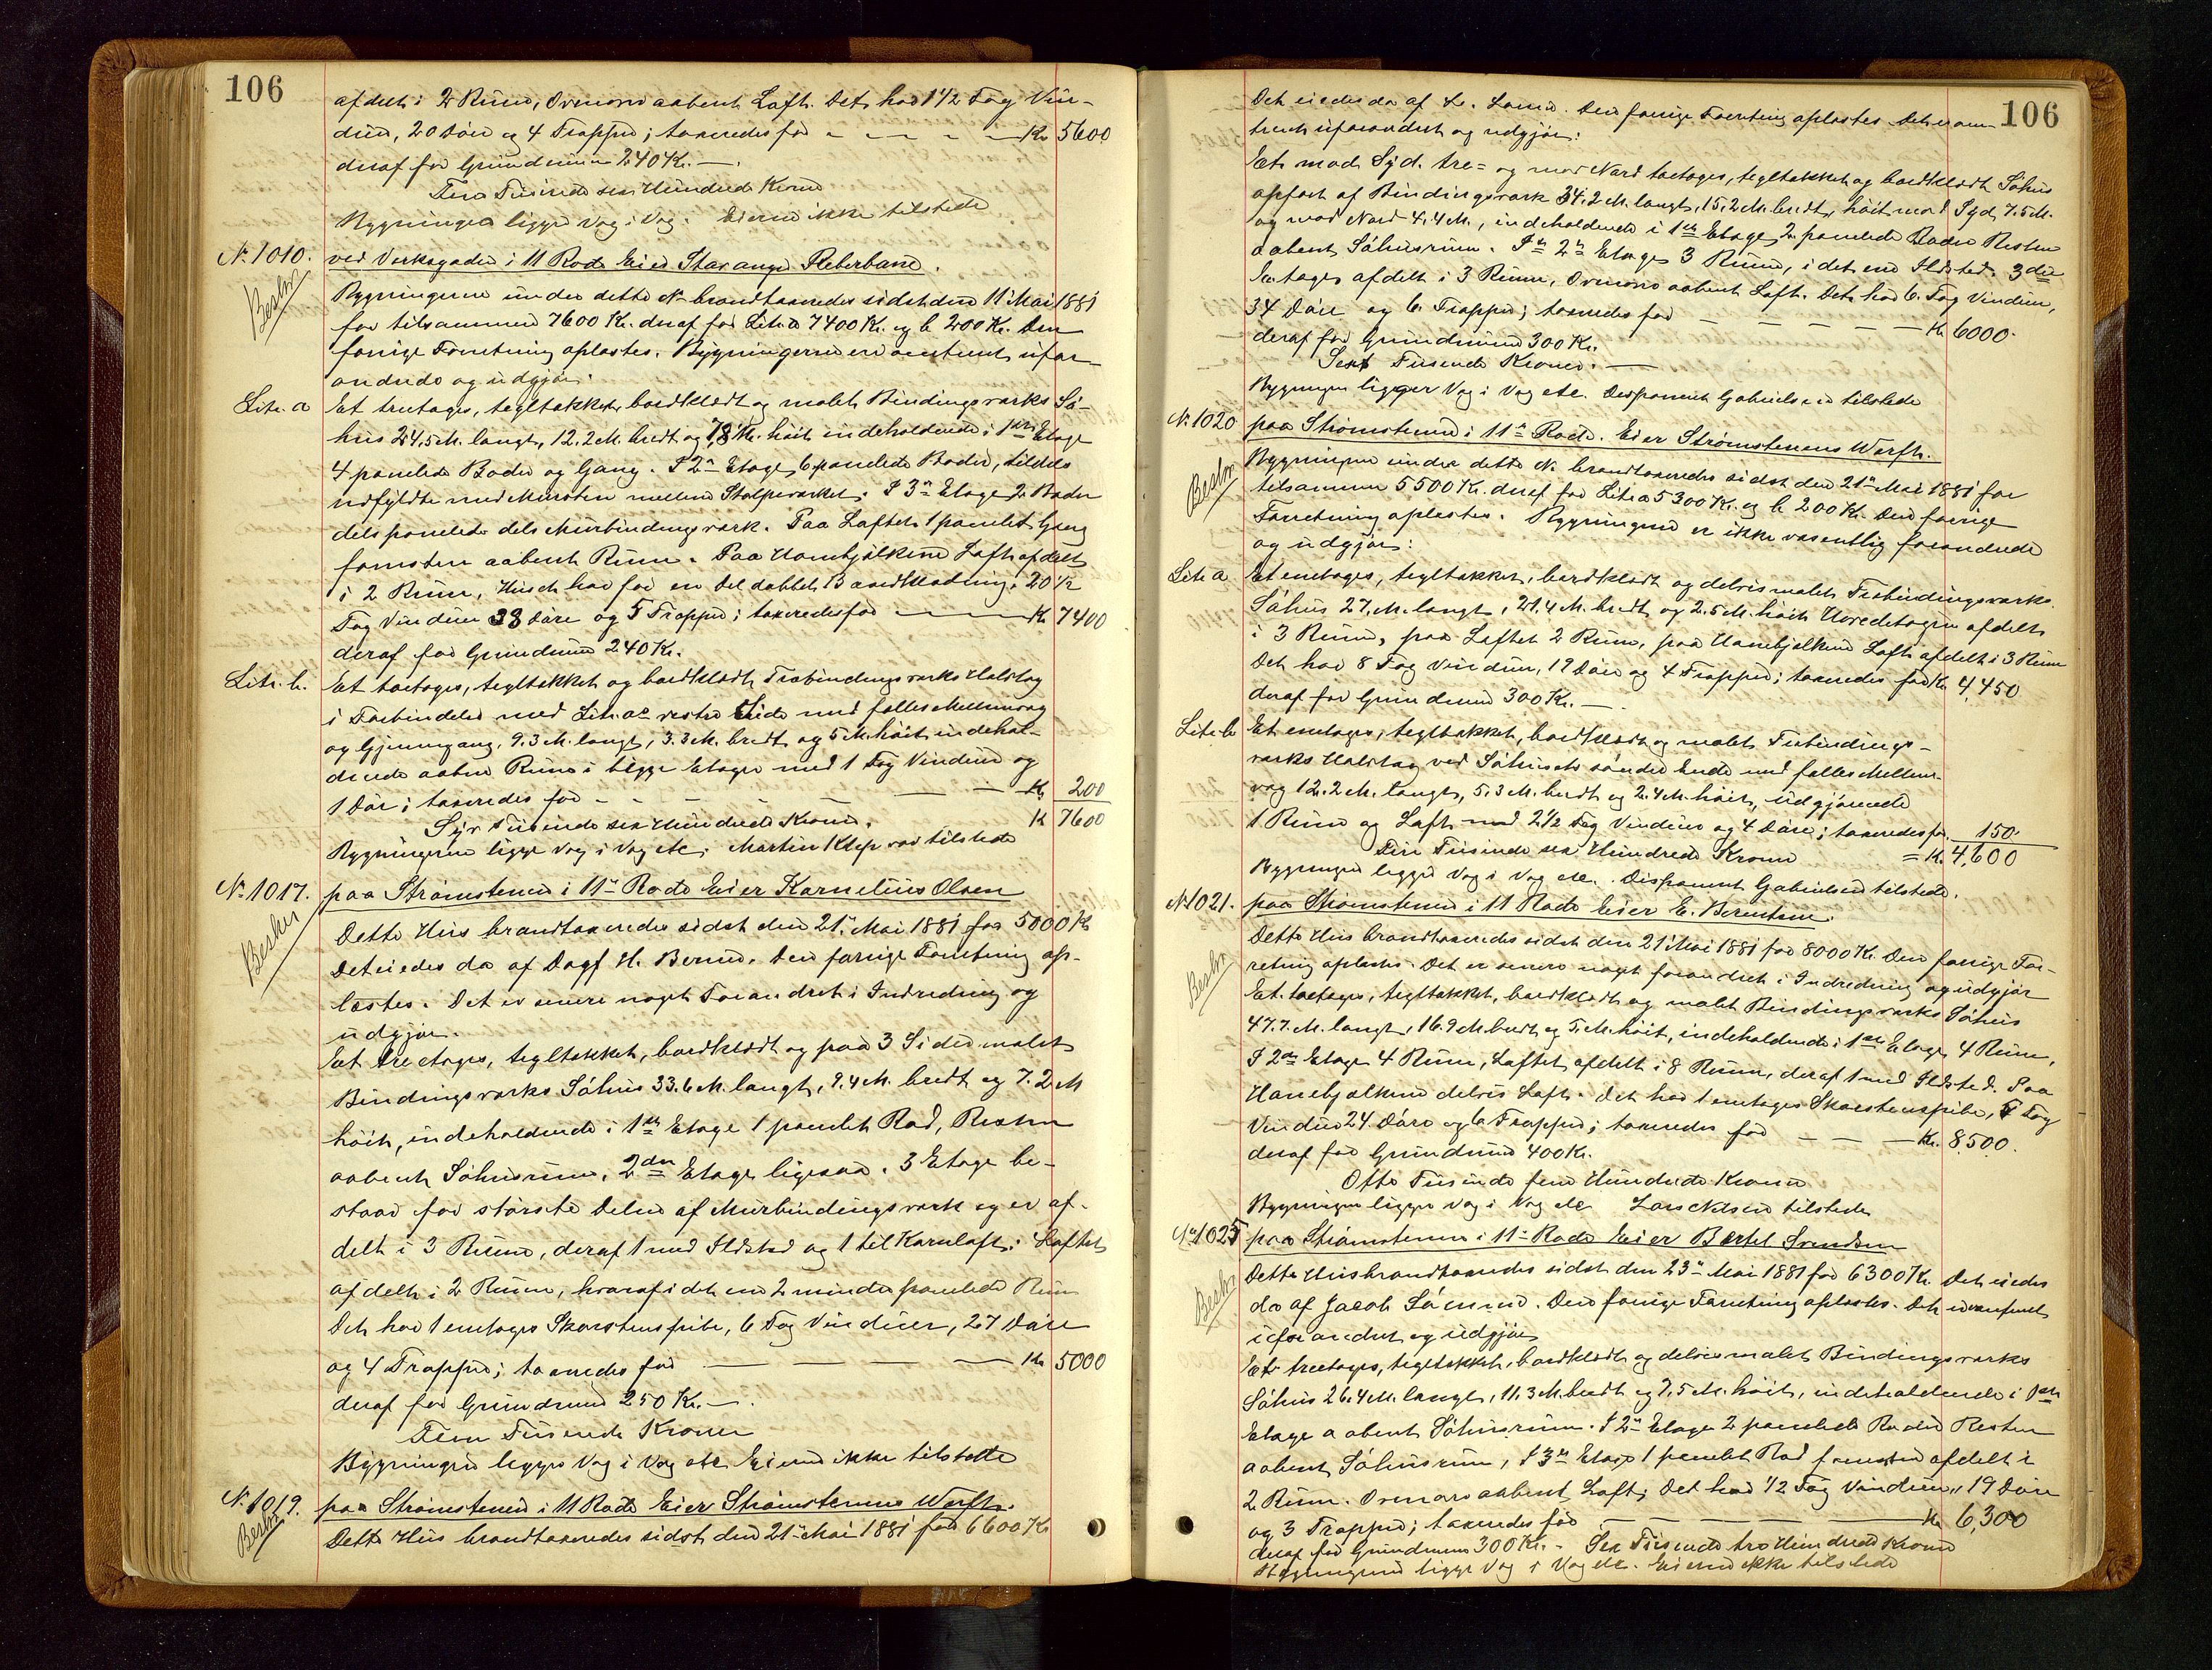 106
afdelt i 2 Rum, Ovenover aabent Loft. Det har 1 1/2 Fag Vin-
duer, 20 Döre og 4 Trapper; taxeredes for - - - - Kr 5600
deraf for Grundmur 240 Kr. -
Fem Tusinde sex Hundrede Kroner
Bygningen ligger Vag i Vag. Eieren ikke tilstede
No 1010. ved Verksgaden i 11 Rode Eier Stavanger Reberbane.
Beskr
Bygningerne under dette No brandtaxeredes sidst den 11 Mai 1881
for tilsammen 7600 Kr. deraf for Litr. a 7400 Kr. og b 200 Kr. Den
forrige Forretning oplæstes. Bygningerne ere omtrent ufor-
andrede og udgjör:
Litr. a Et treetages, tegltækket, bordklædt og malet Bindingsværks Sö-
hus 24,5 M. langt, 12.2 M. bredt og 7,8 M. höit indeholdende i 1ste Etage
4 panelede Boder og Gang. I 2n Etage 6 panelede Boder, tildels
udfyldte med Mursten mellem Stolpeværket. I 3n Etage 2 Boder
dels panelede dels Murbindingsværk. Paa Loftet 1 panelet Gang
forresten aabent Rum. Paa Hanebjelkerne Loft afdelt
i 2 Rum, Huset har for en Del dobbelt Bordklædning. 20 1/2
Fag Vinduer 33 Döre og 5 Trapper; taxeredes for - - - Kr 7400
deraf for Grundmur 240 Kr.
Litr. b. Et toetages, tegltækket og bordklædt Træbindingsværks Halvtag
i Forbindelse med Litr. a's vestre Side med fælles Mellemvæg
og Gjennemgang, 9.3 M. langt, 3.3 M. bredt og 5 M. höit indehol-
dende aabne Rum i begge Etager med 1 Fag Vinduer og
1 Dör; taxeredes for - - - - - Kr 200
Syv Tusinde sex Hundrede Kroner. K 7600
Bygningerne ligge Vag i Vag etc. Martin Klep var tilstede
No 1017. paa Strömstenen i 11te Rode Eier Kornelius Olsen
Beskr
Dette Hus brandtaxeredes sidst den 21 Mai 1881 for 5000 Kr
Det eiedes da af Dagf. H. Berner. Den forrige Forretning op-
læstes. Det er senere noget Forandret i Indredning og
udgjör.
Et treetages, tegltækket, bordklædt og paa 3 Sider malet
Bindingsværks Söhus 33.6 M. langt, 9.4 M. bredt og 7.2 M
höit, indeholdende i 1ste Etage 1 panelet Bod, Resten
aabent Söhusrum, 2den Etage ligesaa. 3 Etage be-
staar for störste Delen af Murbindingsværk og er af-
delt i 3 Rum, deraf 1 med Ildsted og 1 til Kornloft. Loftet
afdelt i 2 Rum, hvoraf i det ene 2 mindre panelede Rum
Det har 1 enetages Skorstenspibe, 6 Fag Vinduer, 27 Döre
og 4 Trapper; taxeredes for - - - - Kr 5000
deraf for Grundmur 250 Kr. -
Fem Tusinde Kroner
Bygningen ligger Vag i Vag etc Eieren ikke tilstede
No 1019. paa Strömstenen i 11 Rode Eier Strömstenens Werft.
Beskr
Dette Hus brandtaxeredes sidst den 21n Mai 1881 for 6600 Kr
106
Det eiedes da af L. Den forrige Forretning oplæstes. Det er om-
trent uforandret og udgjör:
Et mod Syd tre- og mod Nord toetages, tegltækket og bordklædt Söhus
opfört af Bindingsværk 34.2 M. langt, 15.2 M. bredt, höit mod Syd 7.5 M.
og mod Nord 4,4 M., indeholdende i 1ste Etage 2 panelede Boder Resten
aabent Söhusrum. I 2n Etage 3 Rum, i det ene Ildsted. 3die
Etage afdelt i 3 Rum, Ovenover aabent Loft. Det har 6 Fag Vinduer,
34 Döre og 6 Trapper; taxeredes for - - - - - Kr 6000.
deraf for Grundmur 300 Kr.
Sex Tusinde Kroner. -
Bygningen ligger Vag i Vag etc. Disponent Gabrielsen tilstede
No 1020 paa Strömstenen i 11te Rode. Eier Strömstenens Werft.
Beskr
Bygningerne under dette No brandtaxeredes sidst den 21n Mai 1881 for
tilsammen 5500 Kr. deraf for Litr. a 5300 Kr. og b 200 Kr. Den forrige
Forretning oplæstes. Bygningerne er ikke væsentlig forandrede
og udgjör:
Litr. a Et enetages, tegltækket, bordklædt og delvis malet Træbindingsværks
Söhus 27. M. langt, 21,4 M. bredt og 2.5 M. höit Hovedetagen afdelt
i 3 Rum, paa Loftet 2 Rum, paa Hanebjelkerne Loft afdelt i 3 Rum
Det har 8 Fag Vinduer, 19 Döre og 4 Trapper; taxeredes for Kr. 4,450
deraf for Grundmur 300 Kr. -
Litr. b Et enetages, tegltækket, bordklædt og malet Træbindings-
værks Halvtag ved Söhusets söndre Ende med fælles Mellem-
væg 12.2 M. langt, 5.3 M. bredt og 2.4 M. höit, udgjörende
1 Rum og Loft med 2 1/2 Fag Vinduer og 4 Döre; taxeredes for. 150.
Fire Tusinde sex Hundrede Kroner = Kr. 4,600
Bygningen ligger Vag i Vag etc. Disponent Gabrielsen tilstede.
No 1021. paa Strömstenen i 11 Rode Eier E. Berentsen.
Beskr
Dette Hus brandtaxeredes sidst den 21 Mai 1881 for 8000 Kr. Den forrige For-
retning oplæstes. Det er senere noget forandret i Indredning og udgjör
Et toetages, tegltækket, bordklædt og malet Bindingsværks Söhus
47.7. M. langt, 16.9 M. bredt og 5. M. höit, indeholdende i 1ste Etage 4 Rum,
I 2den Etage 4 Rum, Loftet afdelt i 8 Rum, deraf 1 med Ildsted. Paa
Hanebjelkerne delvis Loft. Det har 1 enetages Skorstenspibe, 7 Fag
Vinduer 24 Döre og 6 Trapper; taxeredes for - - - Kr. 8500.
deraf for Grundmur 400 Kr.
Otte Tusinde fem Hundrede Kroner
Bygningen ligger Vag i Vag etc Lars Nilsen tilstede
No 1025 paa Strömstenen i 11te Rode Eier Bertel Svendsen
Beskr
Dette Hus brandtaxeredes sidst den 23n Mai 1881 for 6300 Kr. Det eiedes
da af Jacob Sömme. Den forrige Forretning oplæstes. Det er omtrent
uforandret og udgjör
Et treetages, tegltækket, bordklædt og delvis malet Bindingsværks
Söhus 26.4 M. langt, 11,3 M. bredt og 7,5 M. höit, indeholdende i 1ste
Etage aabent Söhusrum. I 2n Etage 2 panelede Boder Resten
aabent Söhusrum, I 3n Etage 1 panelet Bod forresten afdelt i
2 Rum. Ovenover aabent Loft; Det har 1/2 Fag Vinduer, 19 Döre
og 3 Trapper; taxeredes for - - - Kr 6,300
deraf for Grundmur 300 Kr. - Sex Tusinde tre Hundrede Kroner
Bygningen ligger Vag i Vag etc. Eieren ikke tilstede